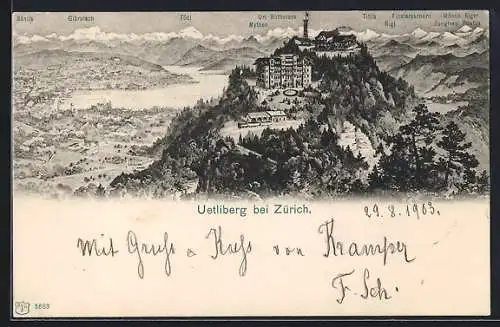 Säntis Glärnisch Tödi Uri-Rothstock Titlis Finsteraarhorn Mönch Eiger
Mythen Rigi Jungfrau
Uetliberg bei Zürich.
29.8.1903.
Mit Gruss & Kuss von Kramper
F. Sch.
5688